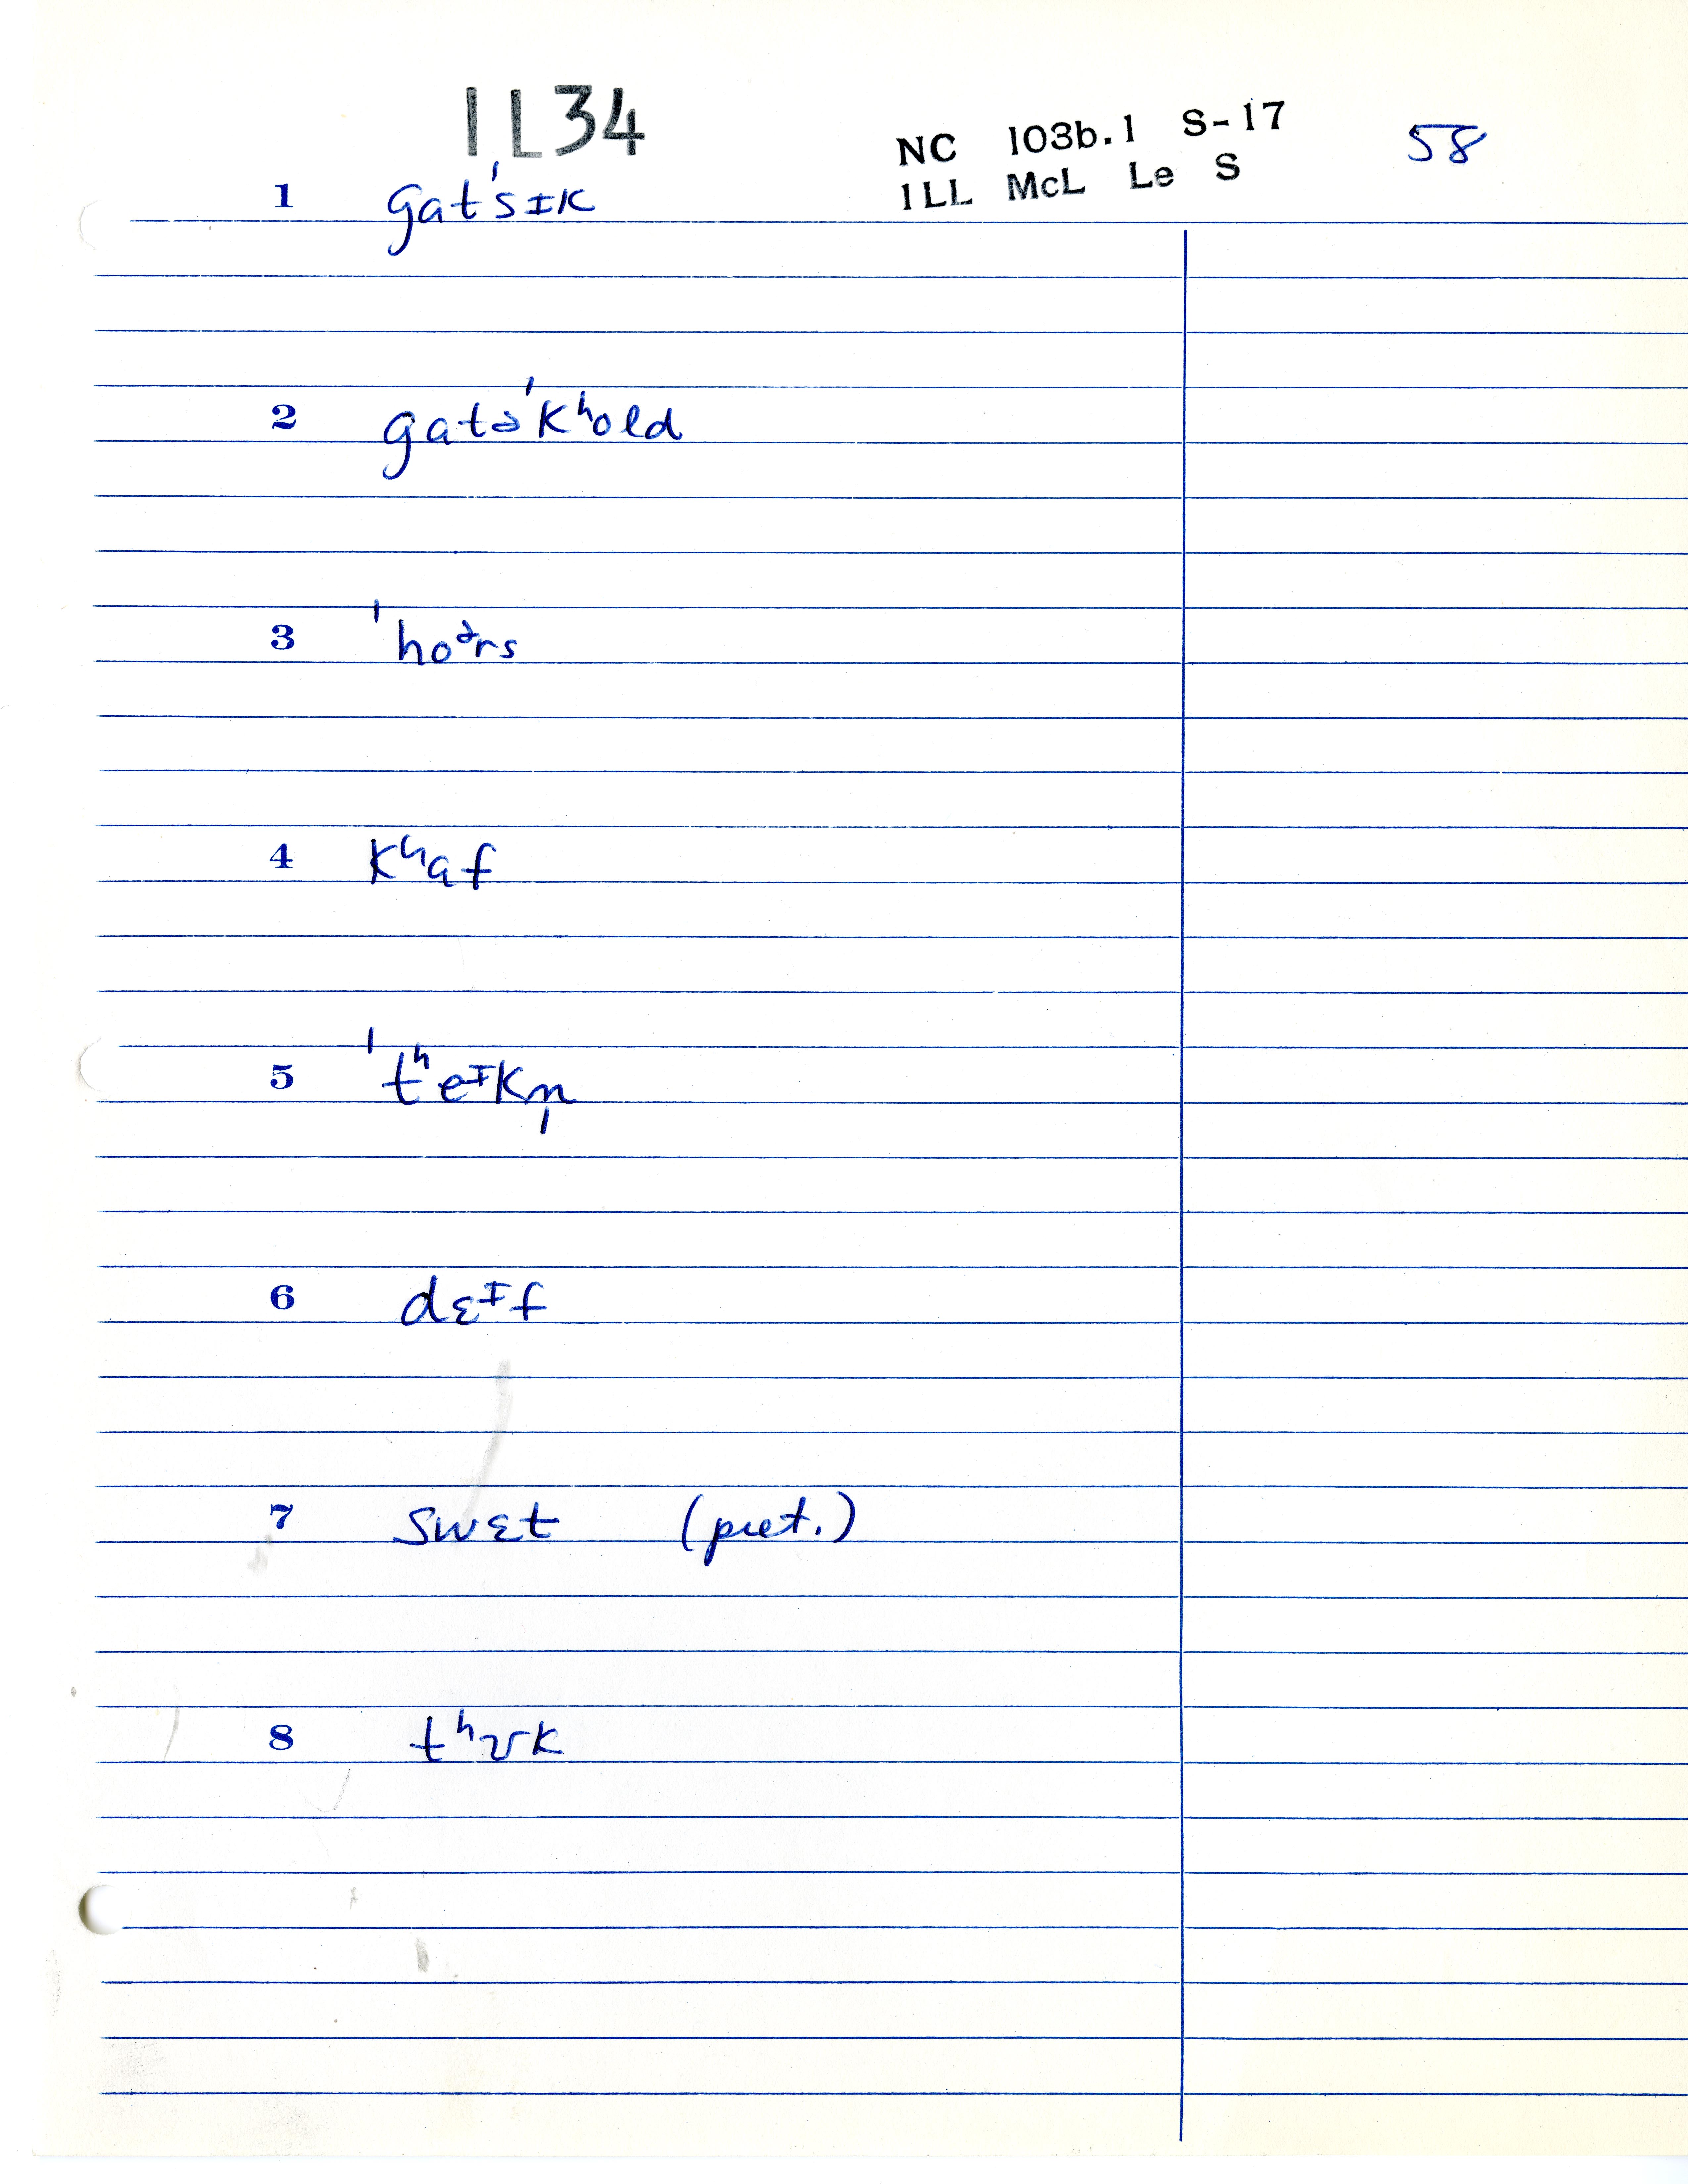 1L34
NC 103b.1 S-17 58
1LL McL Le S
1 gatˈsɪk
2 gatəˈkʰold
3 ˈhoᵊrs
4 kʰaf
5 ˈtʰeᶦkn̩
6 dɛᶦf
7 swɛt (pret.)
8 tʰʊk